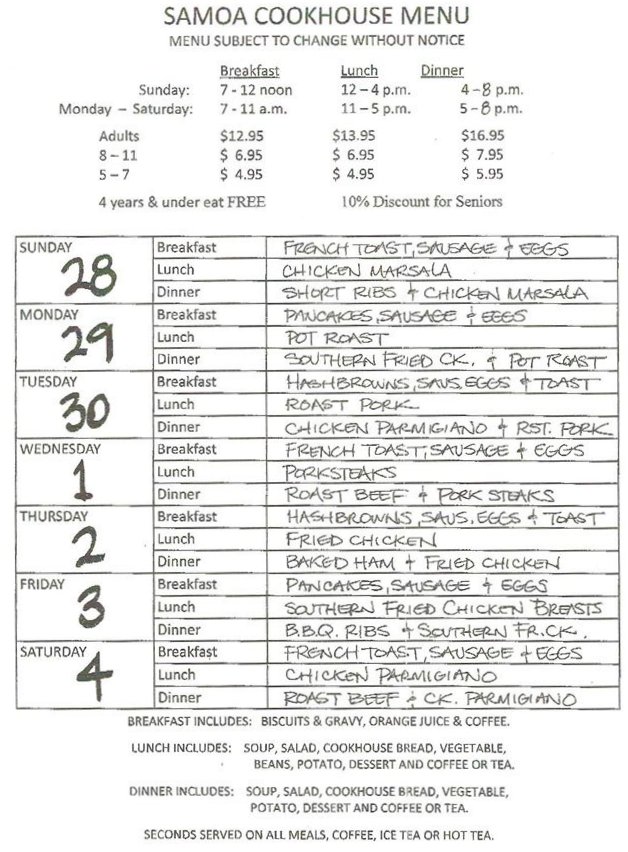 SAMOA COOKHOUSE MENU
MENU SUBJECT TO CHANGE WITHOUT NOTICE
Breakfast Lunch Dinner
Sunday: 7 - 12 noon 12 – 4 p.m. 4 - 8 p.m.
Monday – Saturday: 7 - 11 a.m. 11 – 5 p.m. 5 - 8 p.m.
Adults $12.95 $13.95 $16.95
8 – 11 $ 6.95 $ 6.95 $ 7.95
5 – 7 $ 4.95 $ 4.95 $ 5.95
4 years & under eat FREE 10% Discount for Seniors
SUNDAY 28 Breakfast FRENCH TOAST, SAUSAGE & EGGS
Lunch CHICKEN MARSALA
Dinner SHORT RIBS & CHICKEN MARSALA
MONDAY 29 Breakfast PANCAKES, SAUSAGE & EGGS
Lunch POT ROAST
Dinner SOUTHERN FRIED CK. & POT ROAST
TUESDAY 30 Breakfast HASHBROWNS, SAUS, EGGS & TOAST
Lunch ROAST PORK
Dinner CHICKEN PARMIGIANO & RST. PORK
WEDNESDAY 1 Breakfast FRENCH TOAST, SAUSAGE & EGGS
Lunch PORKSTEAKS
Dinner ROAST BEEF & PORK STEAKS
THURSDAY 2 Breakfast HASHBROWNS, SAUS. EGGS & TOAST
Lunch FRIED CHICKEN
Dinner BAKED HAM & FRIED CHICKEN
FRIDAY 3 Breakfast PANCAKES, SAUSAGE & EGGS
Lunch SOUTHERN FRIED CHICKEN BREASTS
Dinner B.B.Q. RIBS & SOUTHERN FR. CK.
SATURDAY 4 Breakfast FRENCH TOAST, SAUSAGE & EGGS
Lunch CHICKEN PARMIGIANO
Dinner ROAST BEEF & CK. PARMIGIANO
BREAKFAST INCLUDES: BISCUITS & GRAVY, ORANGE JUICE & COFFEE.
LUNCH INCLUDES: SOUP, SALAD, COOKHOUSE BREAD, VEGETABLE,
BEANS, POTATO, DESSERT AND COFFEE OR TEA.
DINNER INCLUDES: SOUP, SALAD, COOKHOUSE BREAD, VEGETABLE,
POTATO, DESSERT AND COFFEE OR TEA.
SECONDS SERVED ON ALL MEALS, COFFEE, ICE TEA OR HOT TEA.